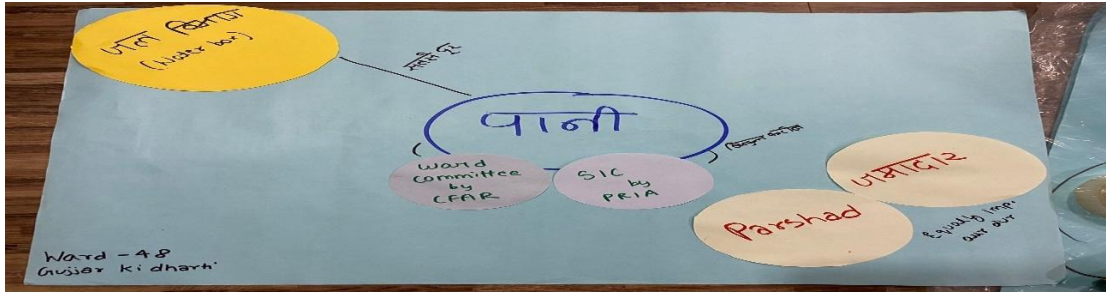 जल विभाग
(Water box)
सबसे दूर
पानी
Ward
Committee
by
CFAR
SIC
by
PRIA
जमादार
Parshad
Equally Imp.
aur dur
Ward - 48
Gujjar ki dharti